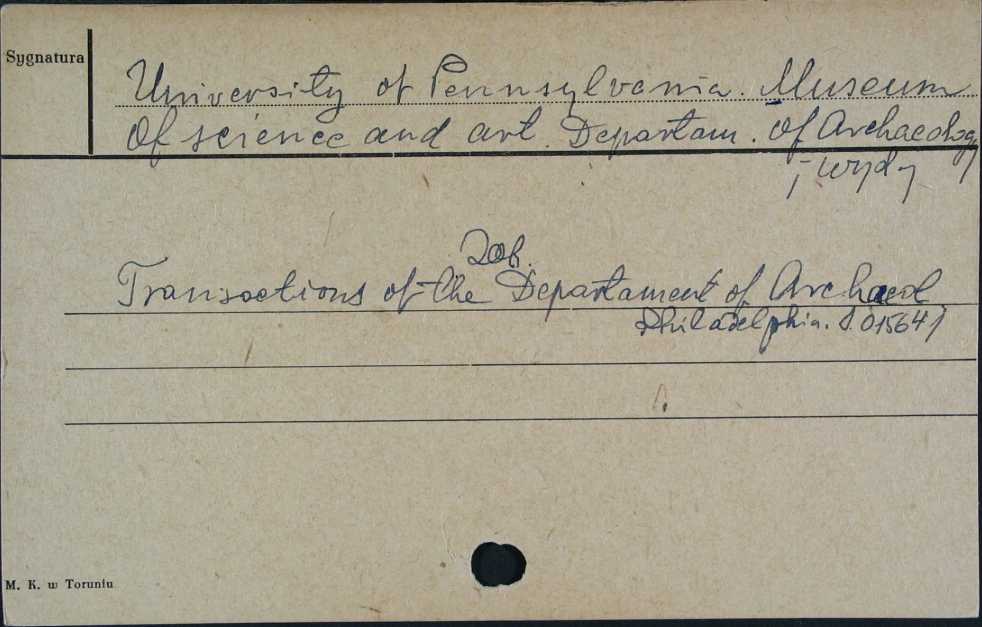 Sygnatura
University of Pennsylvania. Museum
of science and art. Departam. of Archaeology
; wyd;
Zob.
Transactions of the Departament of Archaeol
Philadelphia. S. 01564;
M. K. w Toruniu